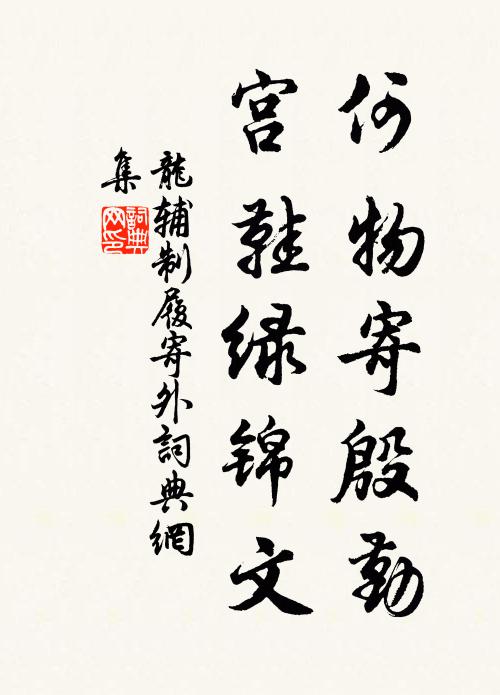 何物寄殷勤
宫鞋绿锦文
龍辅制履寄外詞典網
集
詞典
网印